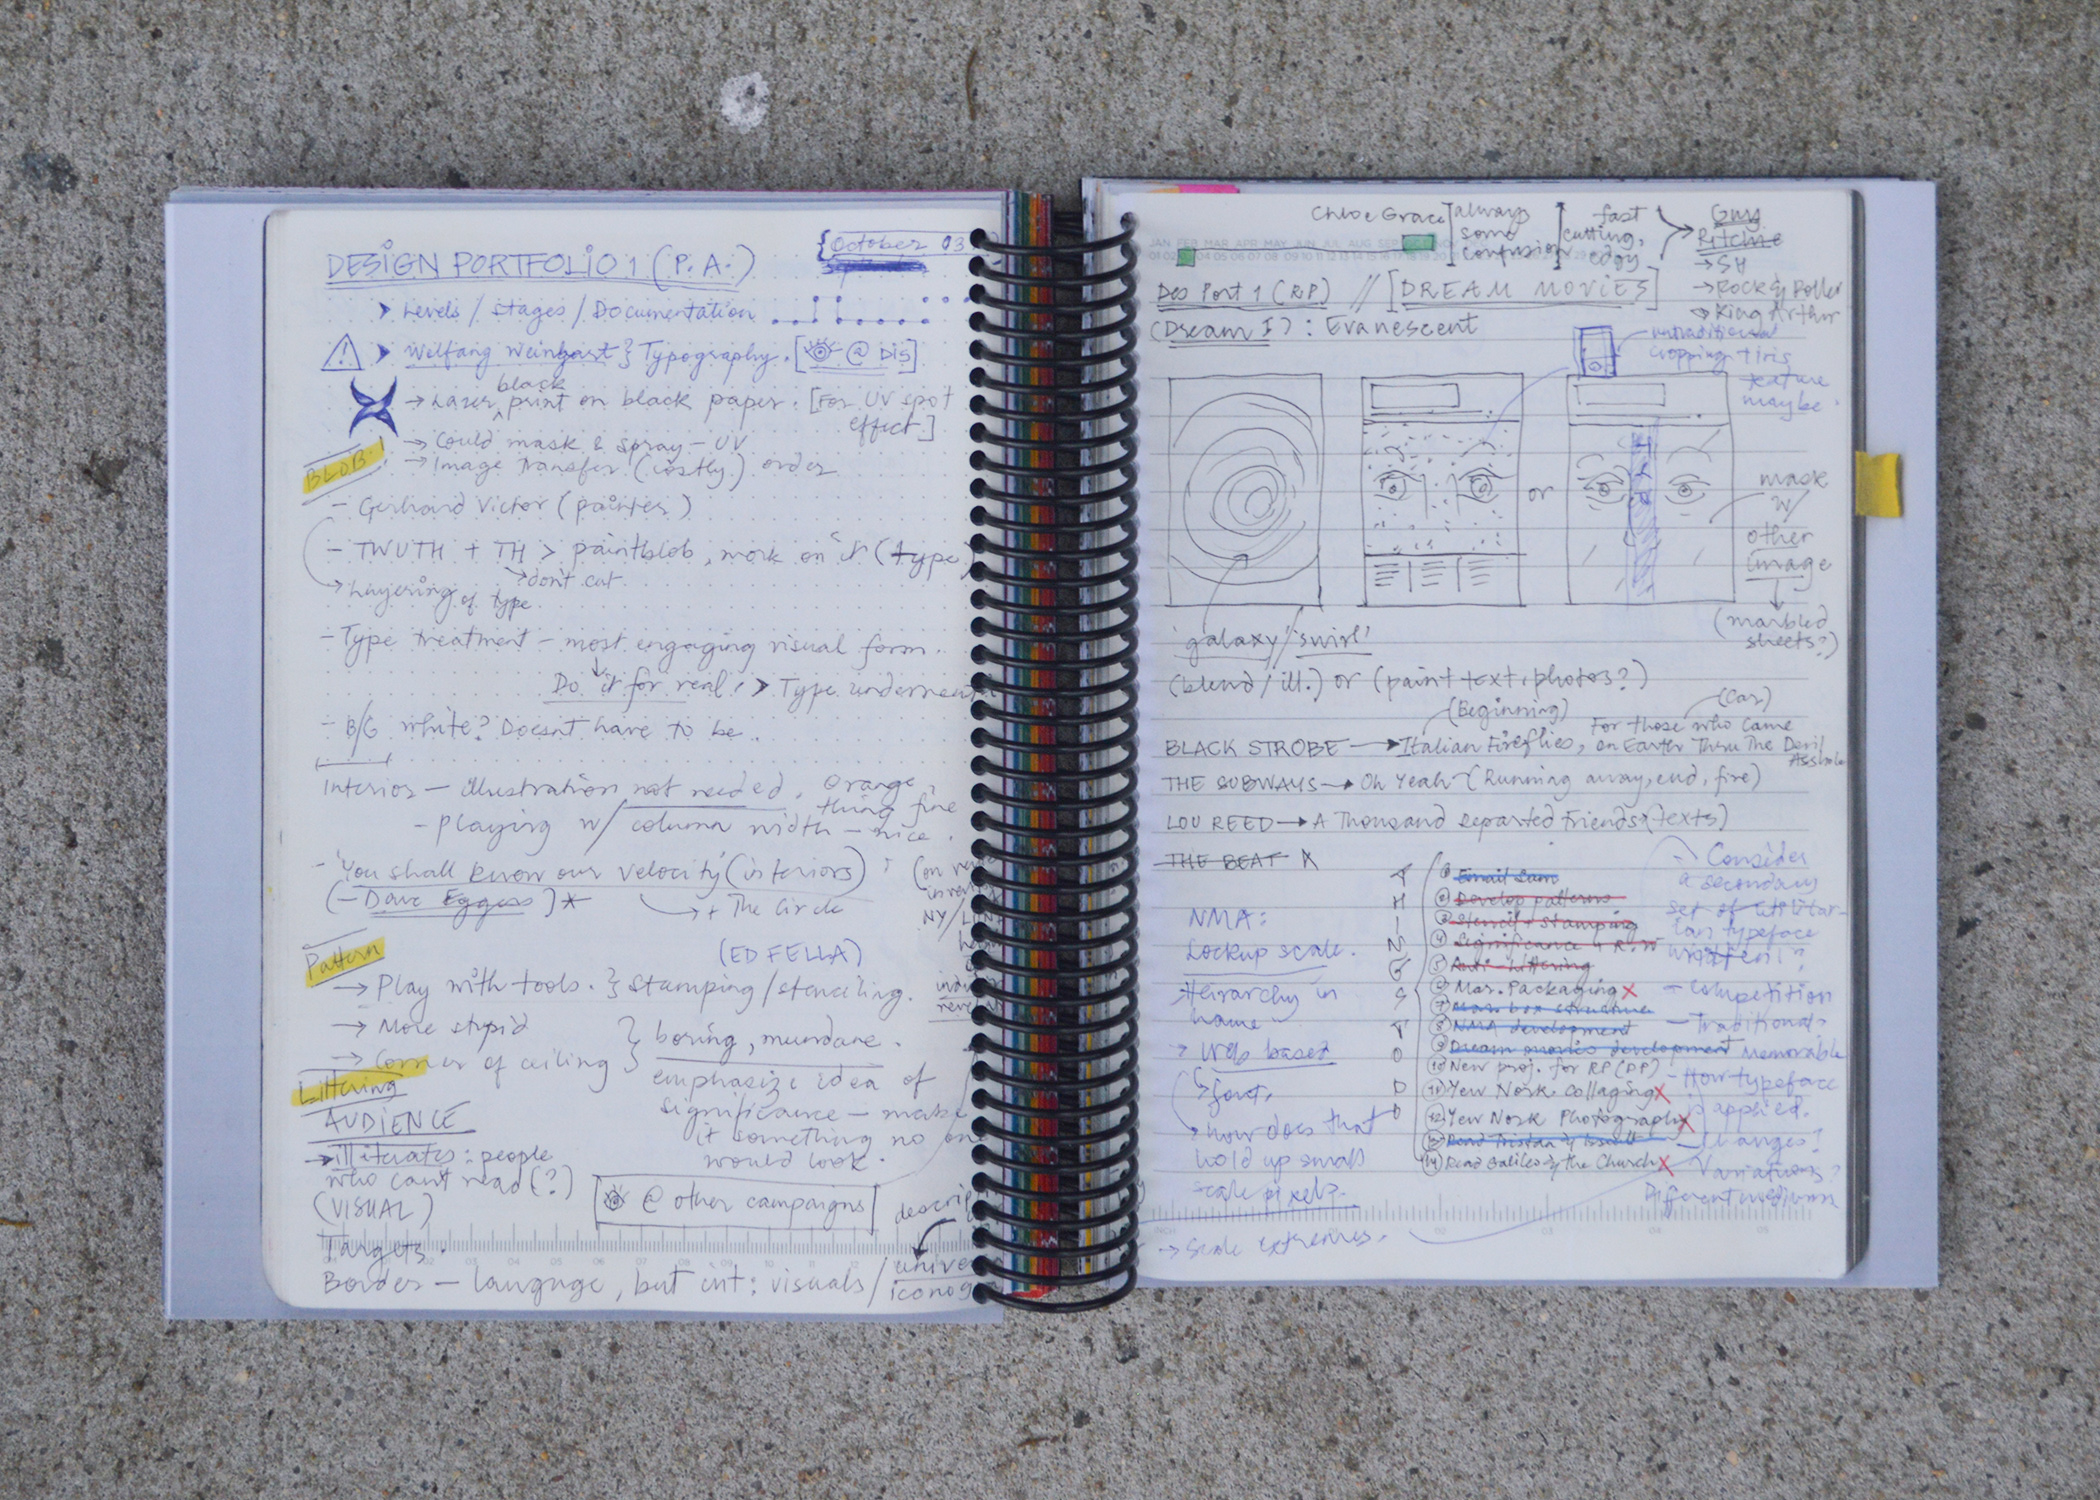 DESIGN PORTFOLIO 1 (P.A.)
{October 03
> Levels / Stages / Documentation
> Wolfang Weingart } Typography. [ @ Dis]
black
→ Lazer print on black paper. [For UV spot
effect]
→ Could mask & spray - UV
BLOB!
→ Image Transfer (costly) order
- Gerhard Victor (painter)
- TWUTH + TH > paintblob, work on it (type)
→ don't cut
→ Layering of type.
- Type treatment - most engaging visual form.
Do it for real, > Type
- B/G white? Doesn't have to be.
Interior - illustration not needed. Orange,
thing fine
- Playing w/ column width - nice.
- 'You shall know our velocity' (interiors)
(- Dave Eggers] *
→ + The Circle
NY /
Pattern
(ED FELLA)
→ Play with tools. } Stamping / stenciling.
→ More stupid
} boring, mundane.
→ Corner of ceiling }
emphasize idea of
Littering
significance - make
AUDIENCE
it something no one
→ illiterates: people
would look.
who can't read (?)
@ other campaigns
(VISUAL)
Targets.
Border - language, but int: visuals /
Chloe Grace [always some confusion] [fast cutting, edgy → Guy Ritchie
→ SH
→ Rock & Rolla
→ King Arthur
JAN FEB MAR APR MAY JUN JUL AUG SEP
Des Port 1 (RP) // [DREAM MOVIES]
(Dream I) : Evanescent
untraditional
cropping + iris
feature
maybe.
or
mask
w/
other
image
(marbled
sheets?)
'galaxy'/'swirl'
(blend / ill.) or (paint text, photos?)
(Beginning)
(Car)
For those who came
BLACK STROBE → Italian Fireflies, on Earth Thru The Devil
Asshole
THE SUBWAYS → Oh Yeah - (Running away, end, fire)
LOU REED → A Thousand Departed Friends (texts)
THE BEAT X
THINGS TO DO
① Email Sam
② Develop patterns
③ Stencil + Stamping
④ Significance + R.W
⑤ Anti-littering
⑥ Mar. Packaging X
⑦ Mar. box structure
⑧ NMA development
⑨ Dream movies development
⑩ New proj. for RP (DP)
⑪ Yew Nork Collaging X
⑫ Yew Nork Photography X
⑬ Read Tristan & Iseult
⑭ Read Galileo & the Church X
NMA:
Lockup scale.
Heirarchy in
name
→ Web based
→ font.
→ How does that
hold up small
scale pixels?
→ Scale extremes.
- Consider
a secondary
set of utilitar-
ian typeface
- Competition
- Traditional?
Memorable
- How typeface
is applied.
- Changes?
Variations?
Different mediums